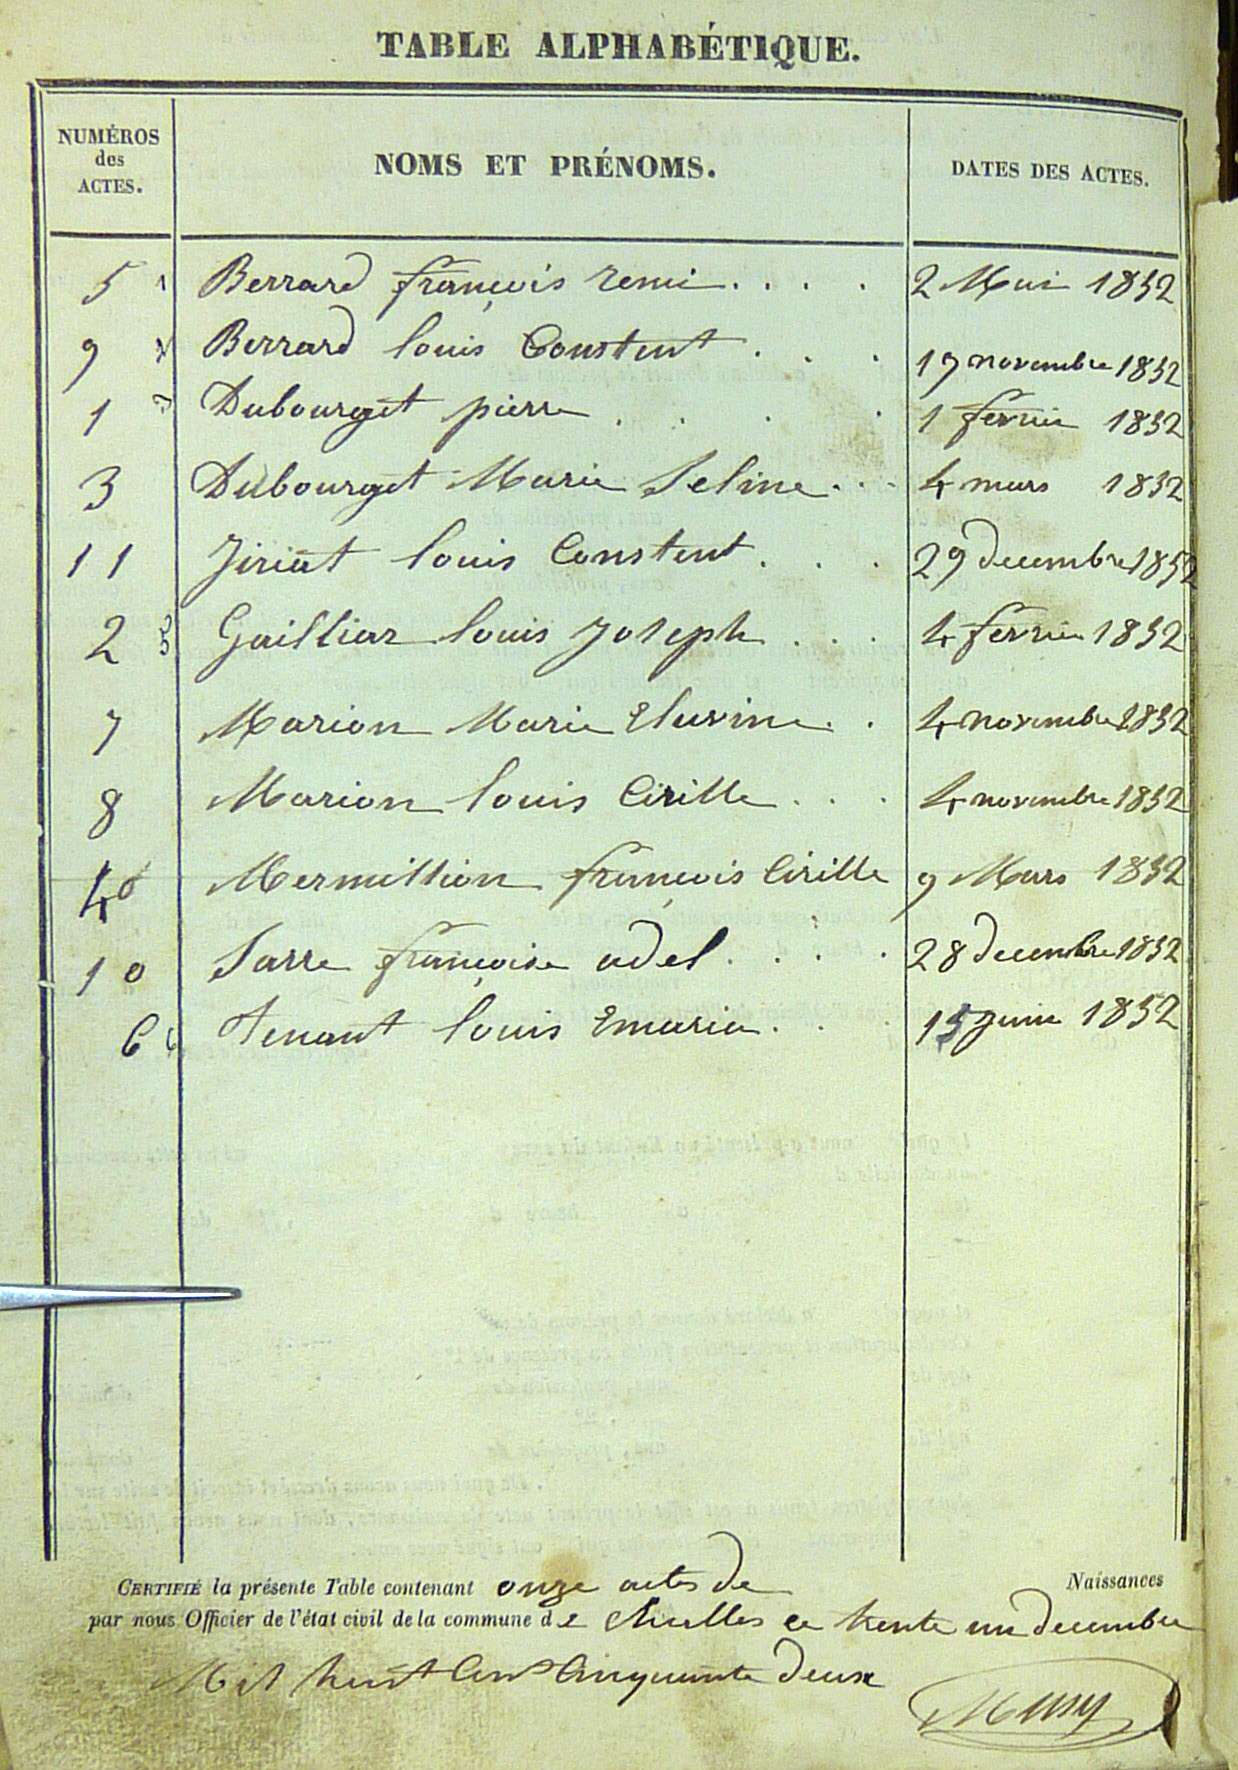 TABLE ALPHABÉTIQUE.
NUMÉROS des ACTES. NOMS ET PRÉNOMS. DATES DES ACTES.
5 1 Berrard françois remi . . . . 2 Mai 1852
9 2 Berrard louis Constent . . . 19 novembre 1852
1 3 Dubourget pierre . . . . 1 fevrier 1852
3 Dubourget Marie Seline . . . 4 mars 1852
11 Jiriat louis Constent . . . 29 decembre 1852
2 Gailliar louis Joseph . . . 4 fevrier 1852
7 Marion Marie Eluvine . . 4 novembre 1852
8 Marion louis Cirille . . . 4 novembre 1852
4 Mermillion françois Cirille 9 Mars 1852
10 Sarre françoise adel . . . . 28 decembre 1852
6 Tenant louis Emarie . . . 15 Juin 1852
CERTIFIÉ la présente Table contenant onze actes de Naissances
par nous Officier de l'état civil de la commune de ce trente un decembre
Mil huit Cent Cinquante deux
Musy